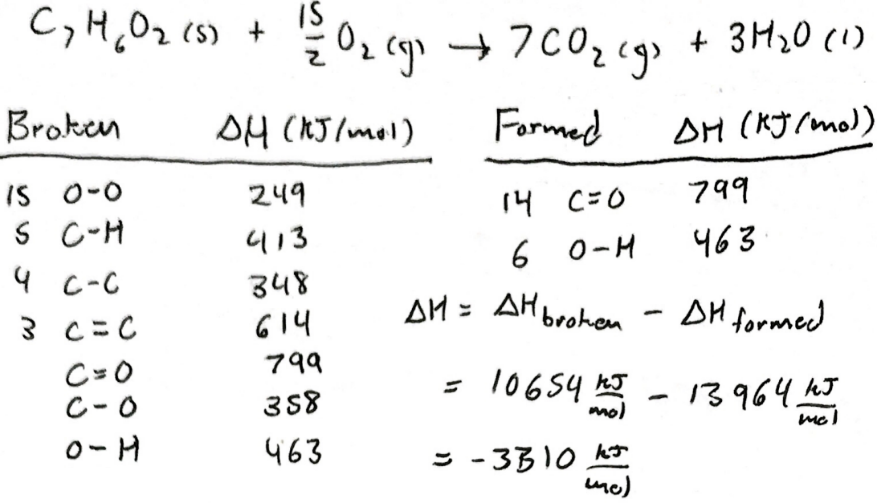 C₇H₆O₂ (s) + 15/2 O₂ (g) → 7CO₂ (g) + 3H₂O (l)
Broken ΔH (kJ/mol)
15 O-O 249
5 C-H 413
4 C-C 348
3 C=C 614
C=O 799
C-O 358
O-H 463
Formed ΔH (kJ/mol)
14 C=O 799
6 O-H 463
ΔH = ΔH broken - ΔH formed
= 10654 kJ/mol - 13964 kJ/mol
= -3310 kJ/mol